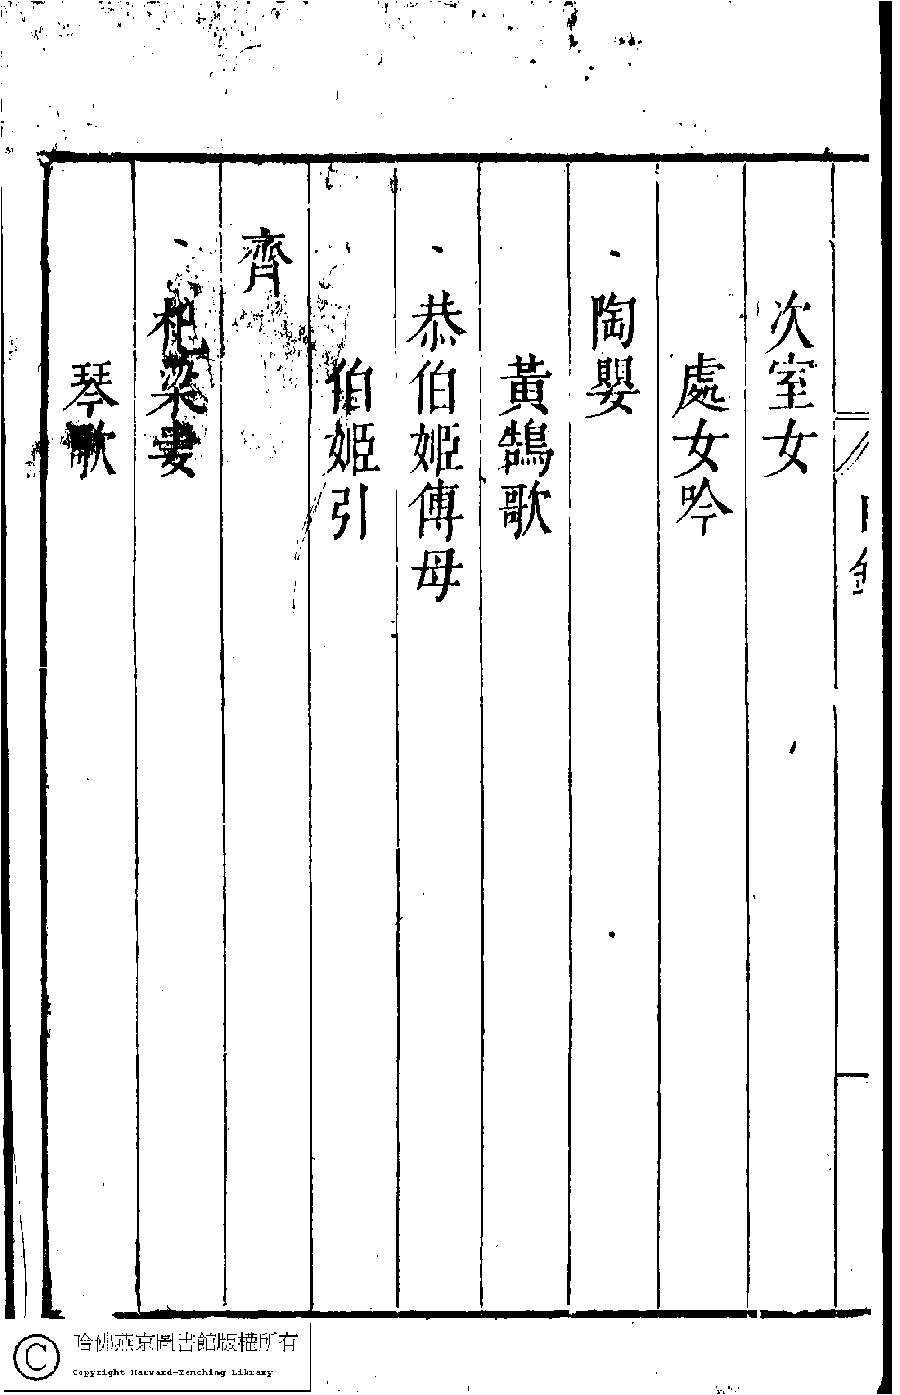 次室女
處女吟
陶嬰
黃鵠歌
恭伯姬傅母
伯姬引
齊
杞梁妻
琴歌
目錄
哈佛燕京圖書館版權所有
Copyright Harvard-Yenching Library